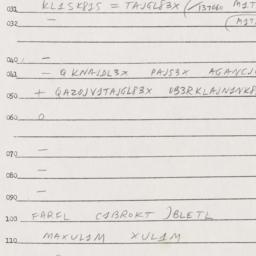 031 KL1SK81S = TAJGL83X (137040 M1T
032 — (M1T
040 —
041 — QKNAJDL3X PAJS3X AGANCJ
050 + QAZOJVJTAJGL83X
060 O
070 —
080 —
090 —
100 FAREL C1BROKT )BLETL
110 MAXUL1M XUL1M